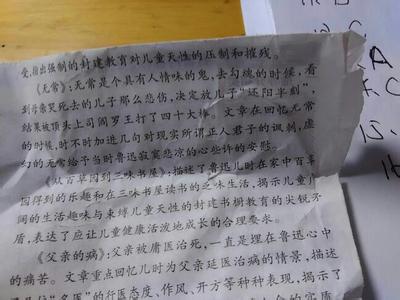 受,指出强制的封建教育对儿童天性的压制和摧残。
《无常》:无常是个具有人情味的鬼,去勾魂的时候,看
到母亲哭死去的儿子那么悲伤,决定放儿子"还阳半刻",
结果被顶头上司阎罗王打了四十大棒。文章在回忆无常
的时候,时不时加进几句对现实所谓正人君子的讽刺,虚
幻的无常给予当时鲁迅寂寞悲凉的心些许的安慰。
《从百草园到三味书屋》:描述了鲁迅儿时在家中百草
园得到的乐趣和在三味书屋读书的乏味生活,揭示儿童广
阔的生活趣味与束缚儿童天性的封建书塾教育的尖锐矛
盾,表达了应让儿童健康活泼地成长的合理要求。
《父亲的病》:父亲被庸医治死,一直是埋在鲁迅心中
的痛苦。文章重点回忆儿时为父亲延医治病的情景,描述
"名医"的行医态度、作风、开方等种种表现,揭示了
的实质
A
C
15.